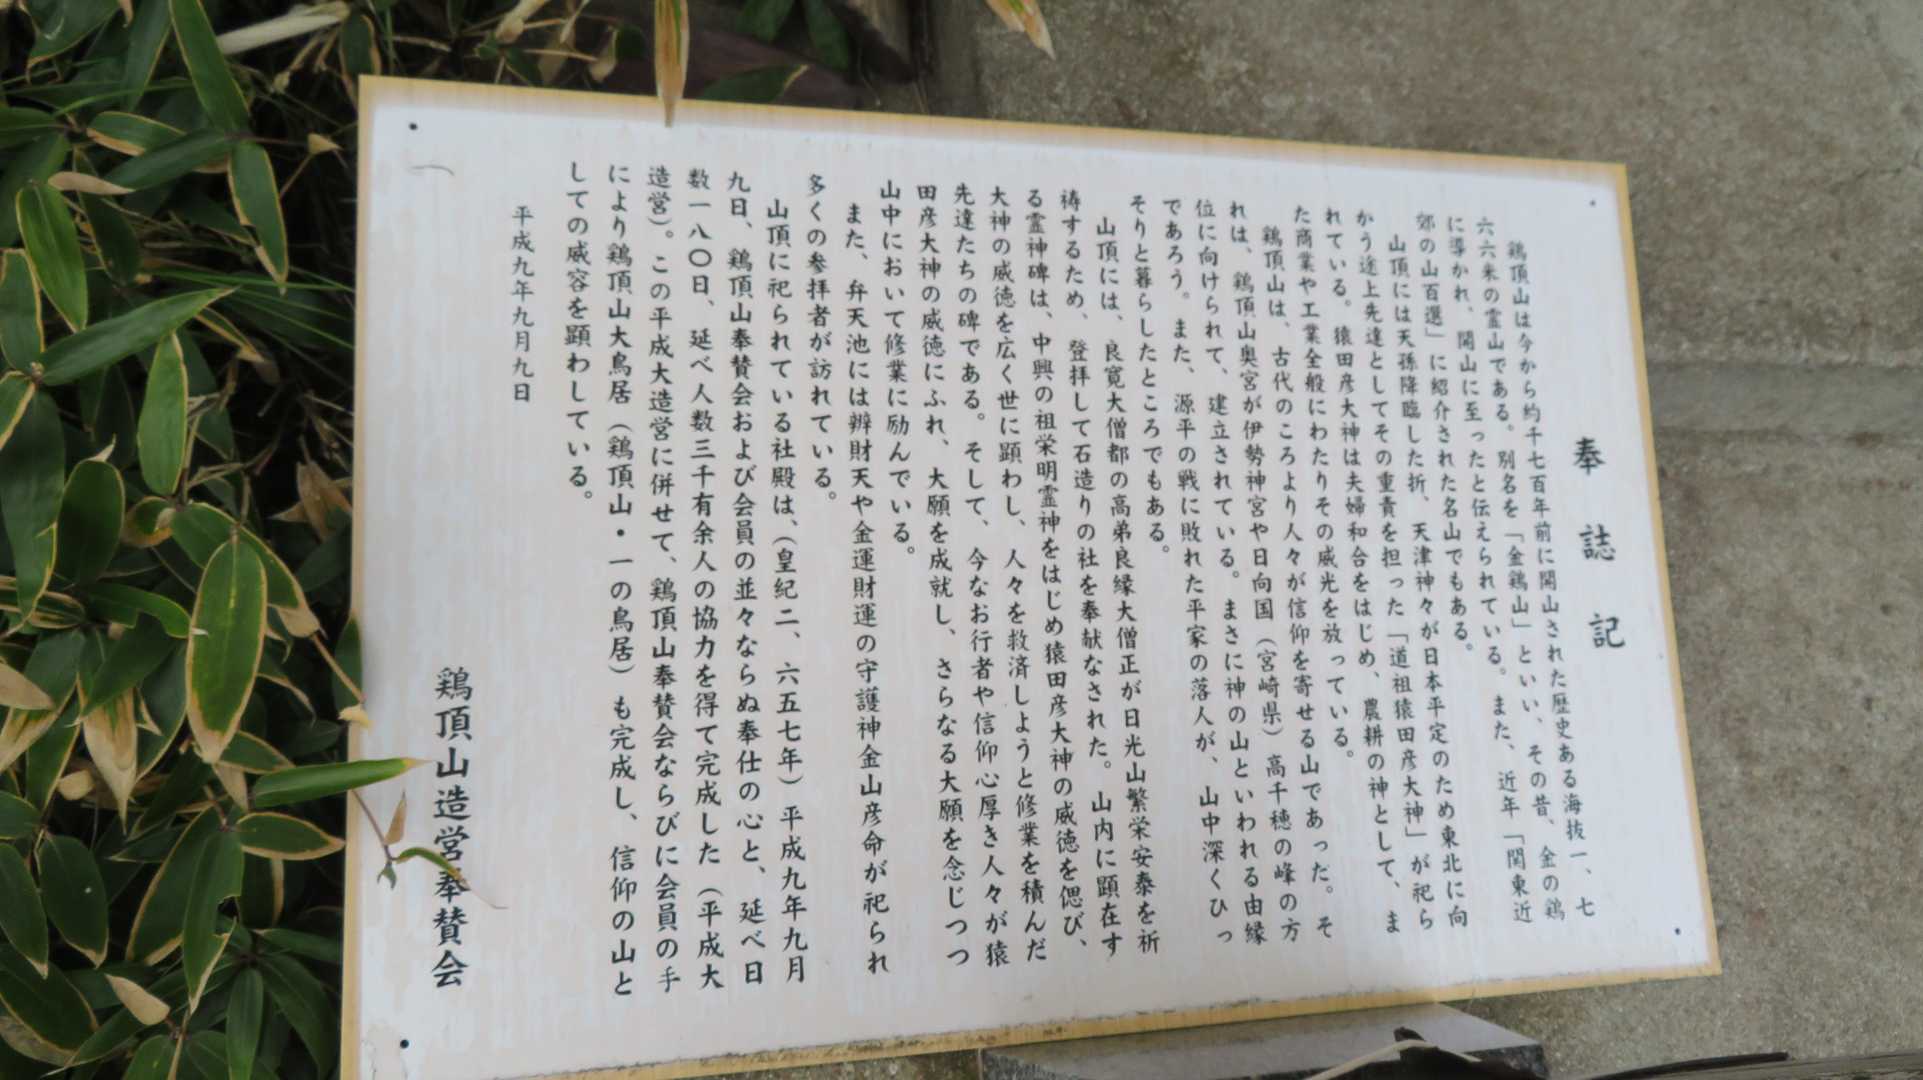 奉誌記
鶏頂山は今から約千七百年前に開山された歴史ある海抜一、七
六六米の霊山である。別名を「金鶏山」といい、その昔、金の鶏
に導かれ、開山に至ったと伝えられている。また、近年「関東近
郊の山百選」に紹介された名山でもある。
山頂には天孫降臨した折、天津神々が日本平定のため東北に向
かう途上先達としてその重責を担った「道祖猿田彦大神」が祀ら
れている。猿田彦大神は夫婦和合をはじめ、農耕の神として、ま
た商業や工業全般にわたりその威光を放っている。
鶏頂山は、古代のころより人々が信仰を寄せる山であった。そ
れは、鶏頂山奥宮が伊勢神宮や日向国（宮崎県）高千穂の峰の方
位に向けられて、建立されている。まさに神の山といわれる由縁
であろう。また、源平の戦に敗れた平家の落人が、山中深くひっ
そりと暮らしたところでもある。
山頂には、良寛大僧都の高弟良縁大僧正が日光山繁栄安泰を祈
祷するため、登拝して石造りの社を奉献なされた。山内に顕在す
る霊神碑は、中興の祖栄明霊神をはじめ猿田彦大神の威徳を偲び、
大神の威徳を広く世に顕わし、人々を救済しようと修業を積んだ
先達たちの碑である。そして、今なお行者や信仰心厚き人々が猿
田彦大神の威徳にふれ、大願を成就し、さらなる大願を念じつつ
山中において修業に励んでいる。
また、弁天池には辨財天や金運財運の守護神金山彦命が祀られ
多くの参拝者が訪れている。
山頂に祀られている社殿は、（皇紀二、六五七年）平成九年九月
九日、鶏頂山奉賛会および会員の並々ならぬ奉仕の心と、延べ日
数一八〇日、延べ人数三千有余人の協力を得て完成した（平成大
造営）。この平成大造営に併せて、鶏頂山奉賛会ならびに会員の手
により鶏頂山大鳥居（鶏頂山・一の鳥居）も完成し、信仰の山と
しての威容を顕わしている。
平成九年九月九日
鶏頂山造営奉賛会